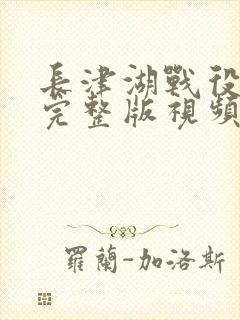 長津湖戰役
完整版視頻
羅蘭-加洛斯